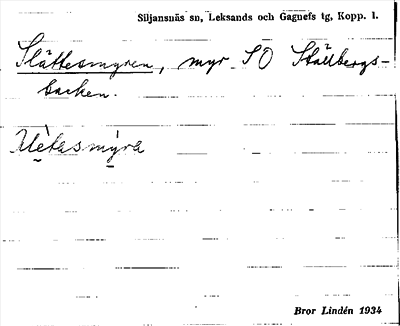 Siljansnäs sn, Leksands och Gagnefs tg, Kopp. l.
Slättesmyren, myr SO Ställbergs-
backen.
Bror Lindén 1934